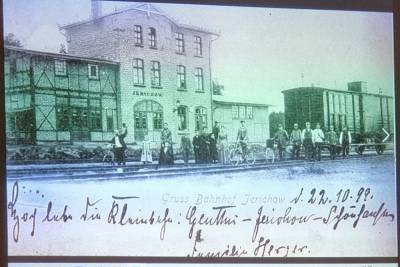 JERICHOW
Gruss Bahnhof Jerichow d. 22.10.99.
Hoch lebe die Kleinbahn: Genthin - Jerichow - Schönhausen
Familie